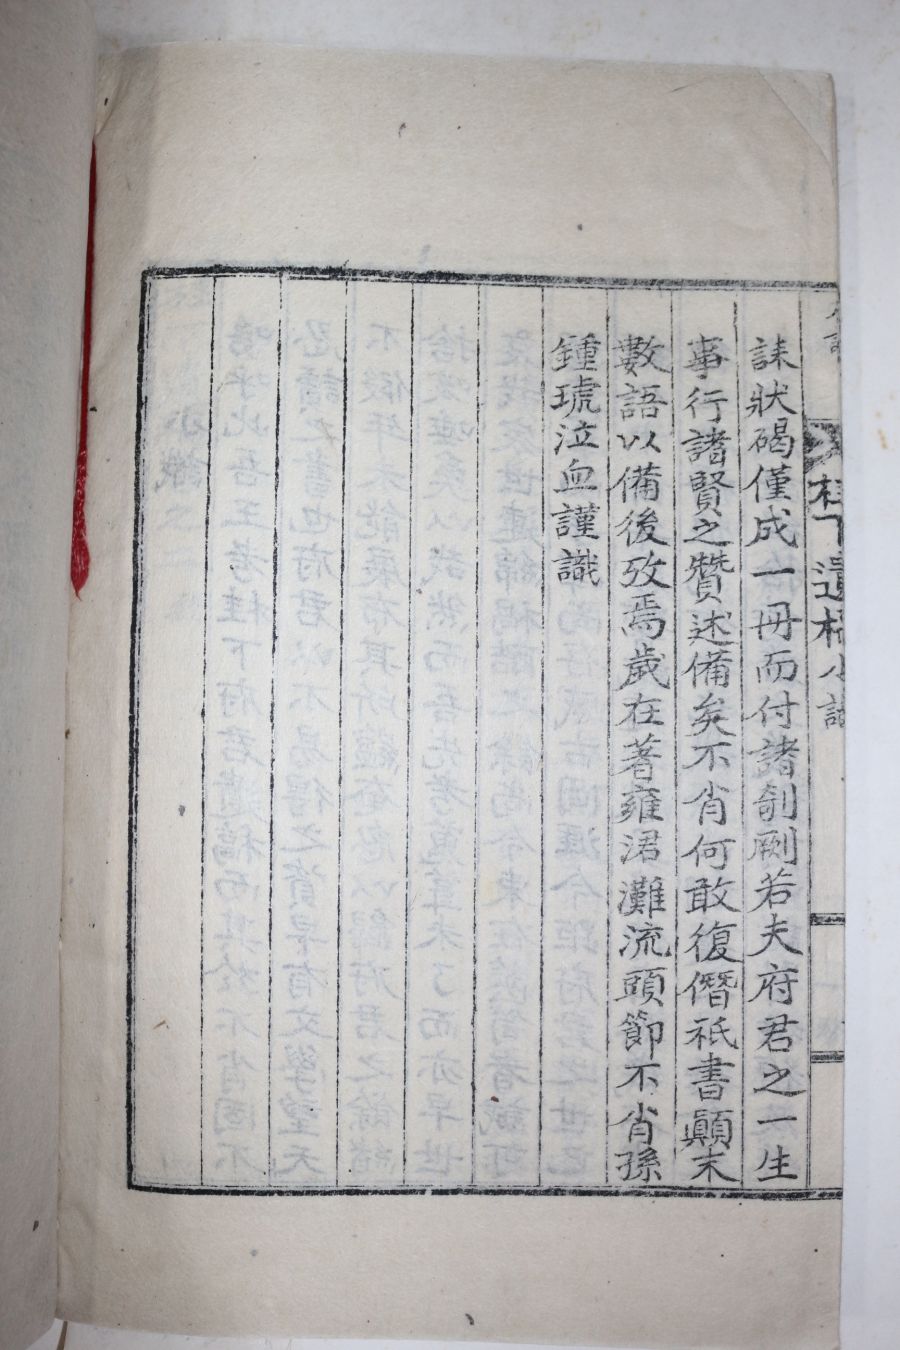 誄狀碣僅成一冊而付諸剞劂若夫府君之一生
事行諸賢之贊述備矣不肖何敢復僭祇書顚末
數語以備後攷焉歲在著雍涒灘流頭節不肖孫
鍾琥泣血謹識
桂下遺稿 小識